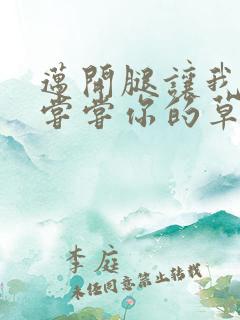 邁開腿讓我
嘗嘗你的草
李庭
未任同意禁止转载